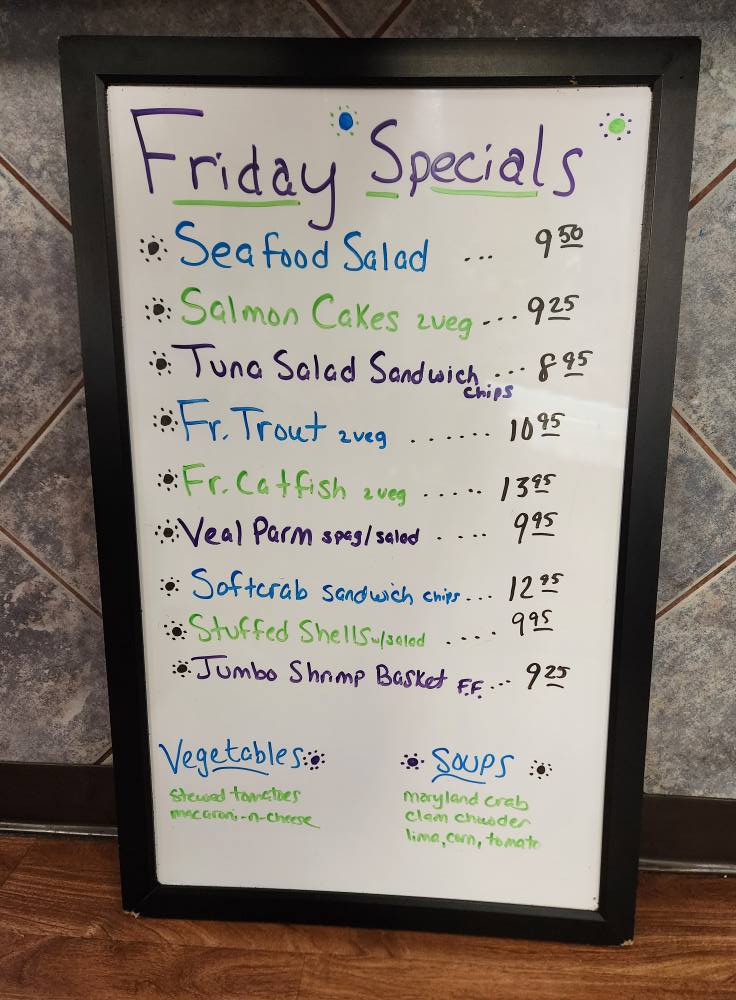 Friday Specials
Seafood Salad ... 9 50
Salmon Cakes 2veg ... 9 25
Tuna Salad Sandwich ... 8 95
chips
Fr. Trout 2veg ...... 10 95
Fr. Catfish 2veg ..... 13 95
Veal Parm spag/salad .... 9 95
Softcrab sandwich chips ... 12 95
Stuffed Shells w/salad .... 9 95
Jumbo Shrimp Basket F.F. ... 9 25
Vegetables
stewed tomatoes
macaroni-n-cheese
Soups
maryland crab
clam chowder
lima, corn, tomato